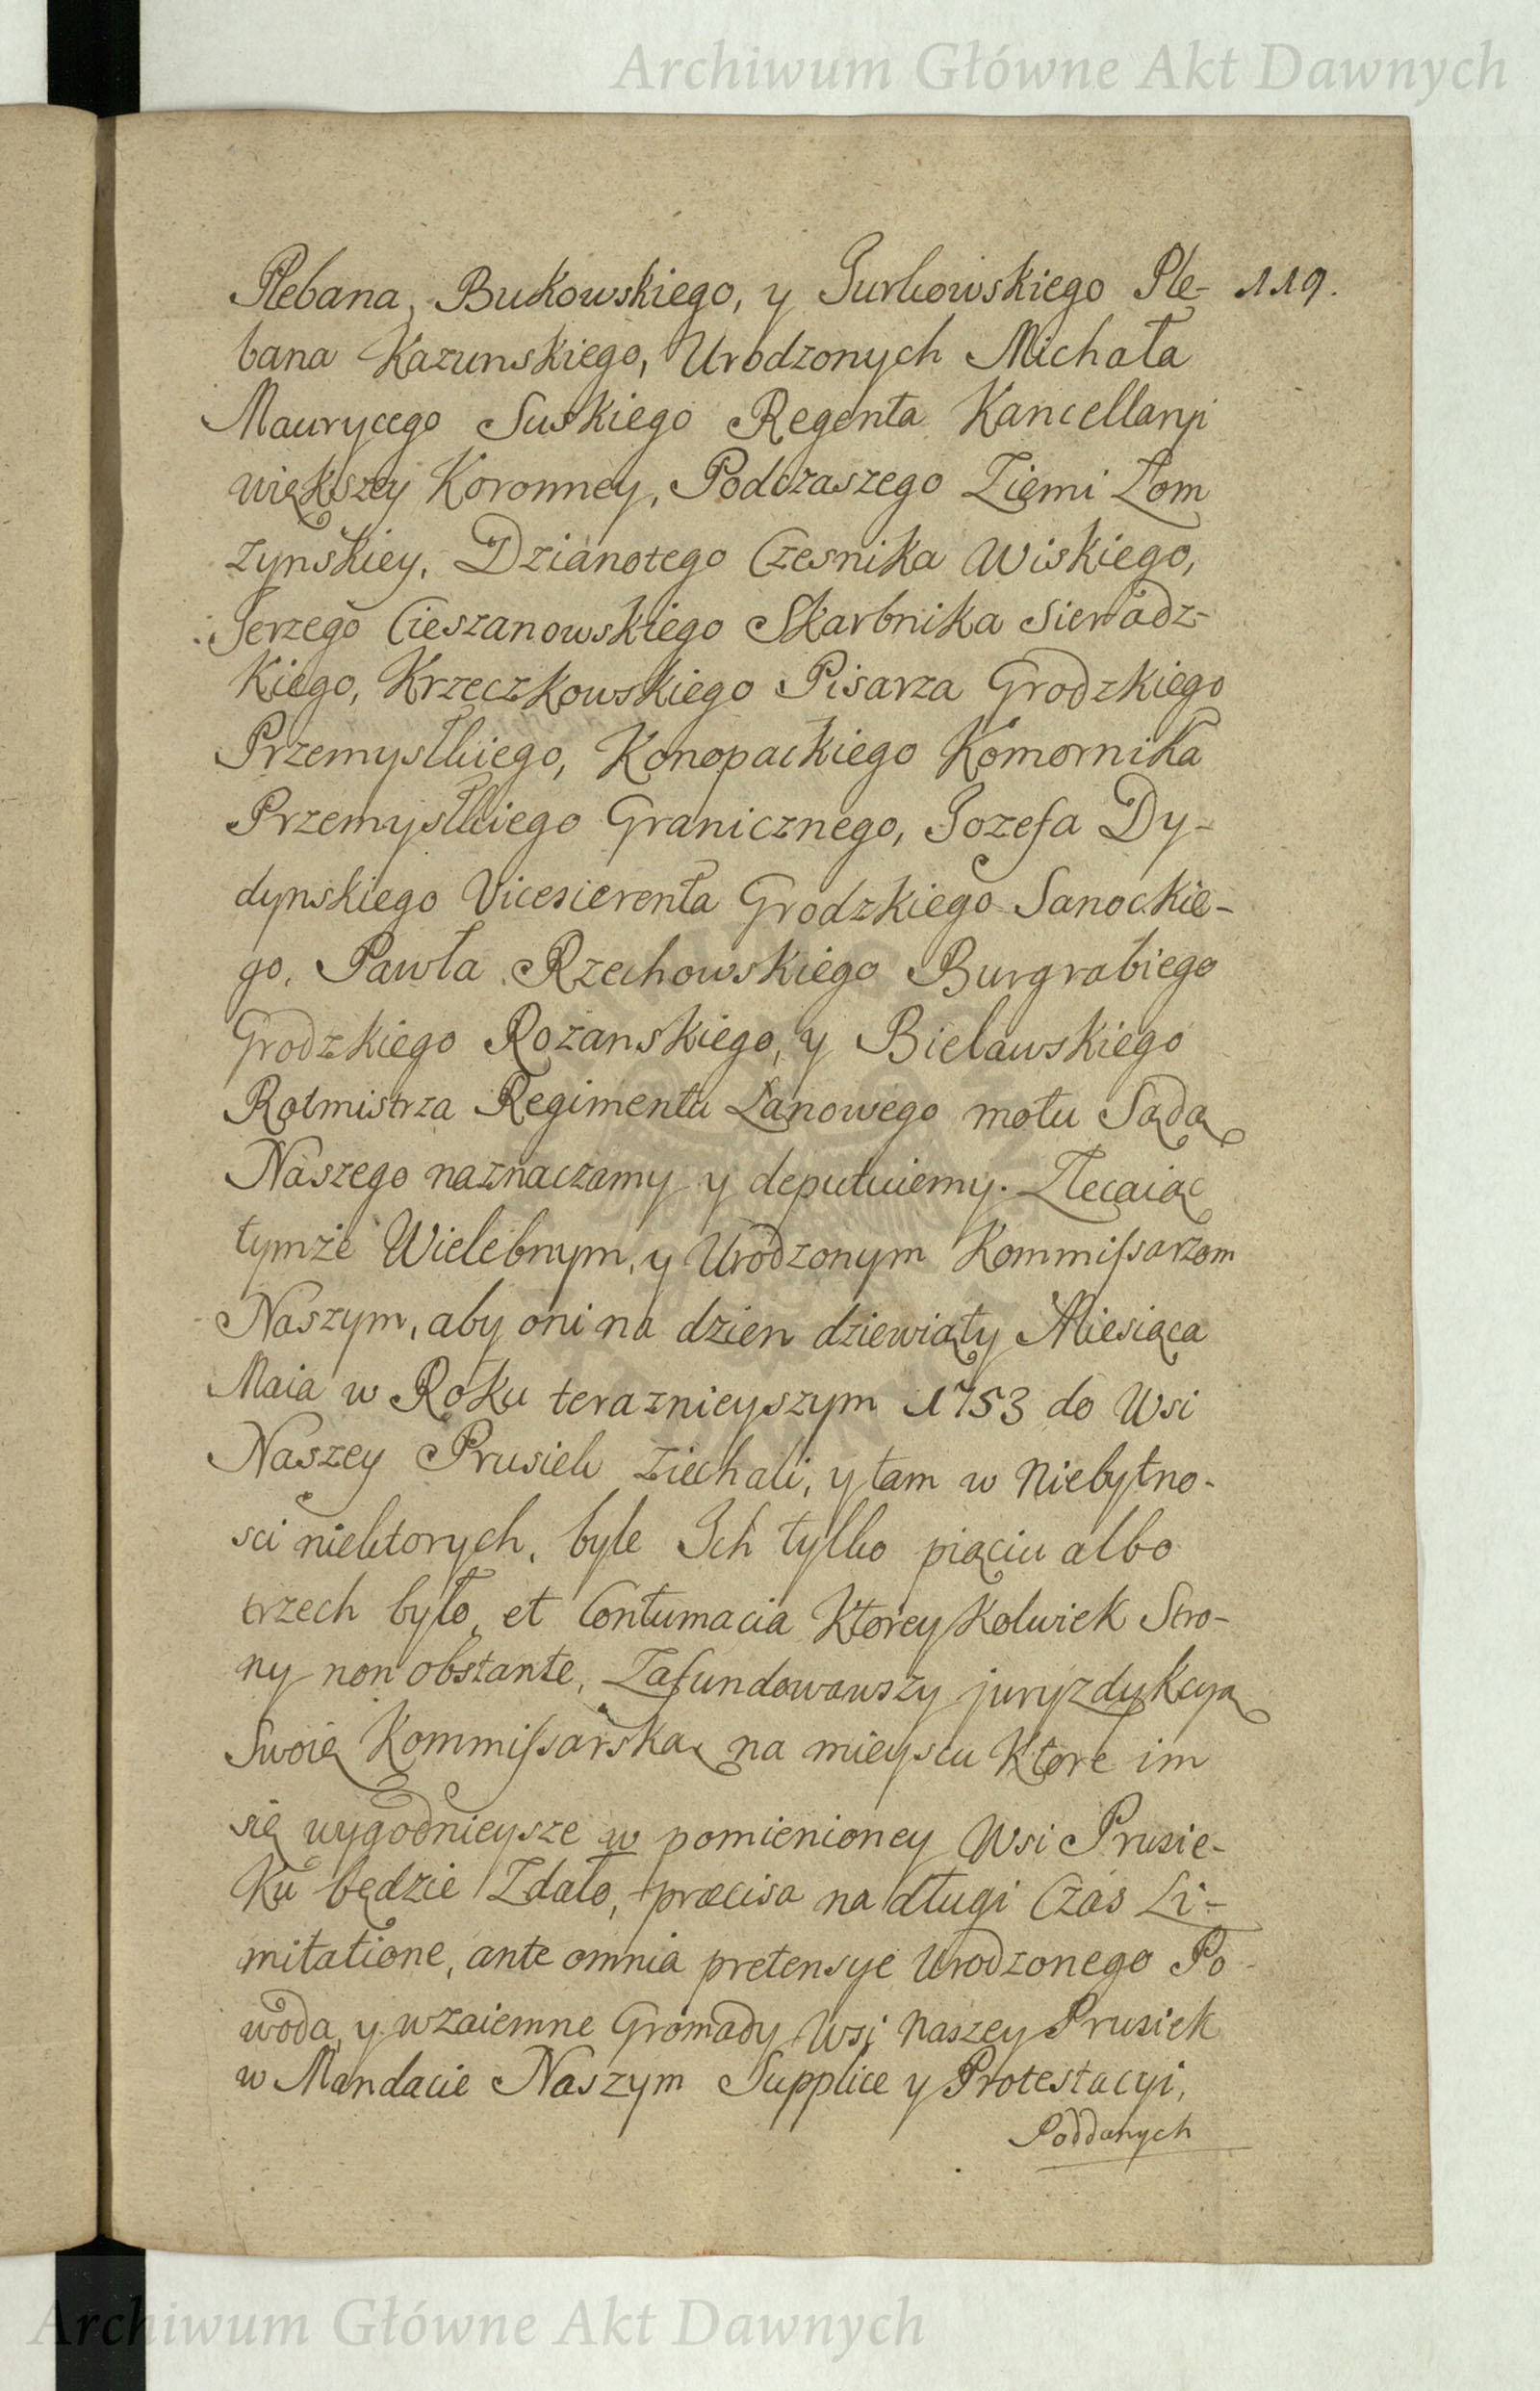 Archiwum Główne Akt Dawnych
Plebana, Bukowskiego, y Turkowskiego Ple- 119.
bana Kazunskiego, Urodzonych Michała
Maurycego Suskiego Regenta Kancellaryi
większey Koronney, Podczaszego Ziemi Łom
zynskiey, Dzianotego Czesnika Wiskiego,
Jerzego Cieszanowskiego Skarbnika Sieradz-
kiego, Krzeczkowskiego Pisarza Grodzkiego
Przemyslkiego, Konopackiego Komornika
Przemyslkiego Granicznego, Jozefa Dy-
dynskiego Vicesierenta Grodzkiego Sanockie-
go, Pawła Rzechowskiego Burgrabiego
Grodzkiego Rożanskiego, y Bielawskiego
Rotmistrza Regimentu Łanowego motu Sądu
Naszego naznaczamy y deputuiemy. Zlecaiąc
tymże Wielebnym, y Urodzonym Kommissarzom
Naszym, aby oni na dzien dziewiąty Miesiąca
Maia w Roku teraznieyszym 1753 do Wsi
Naszey Prusiek ziechali, y tam w Niebytno-
sci niektorych, byle Ich tylko piąciu albo
trzech było, et Contumacia Ktorey Kolwiek Stro-
ny non obstante, Zafundowawszy juryzdykcyą
Swoię Kommissarską na mieyscu Ktore im
się wygodnieysze w pomienioney Wsi Prusie-
Ku będzie Zdało, præcisa na długi Czas Li-
mitatione, ante omnia pretensye Urodzonego Po-
woda, y wzaiemne Gromady Wsi Naszey Prusiek
w Mandacie Naszym Supplice y Protestacyi,
Poddanych
Archiwum Główne Akt Dawnych